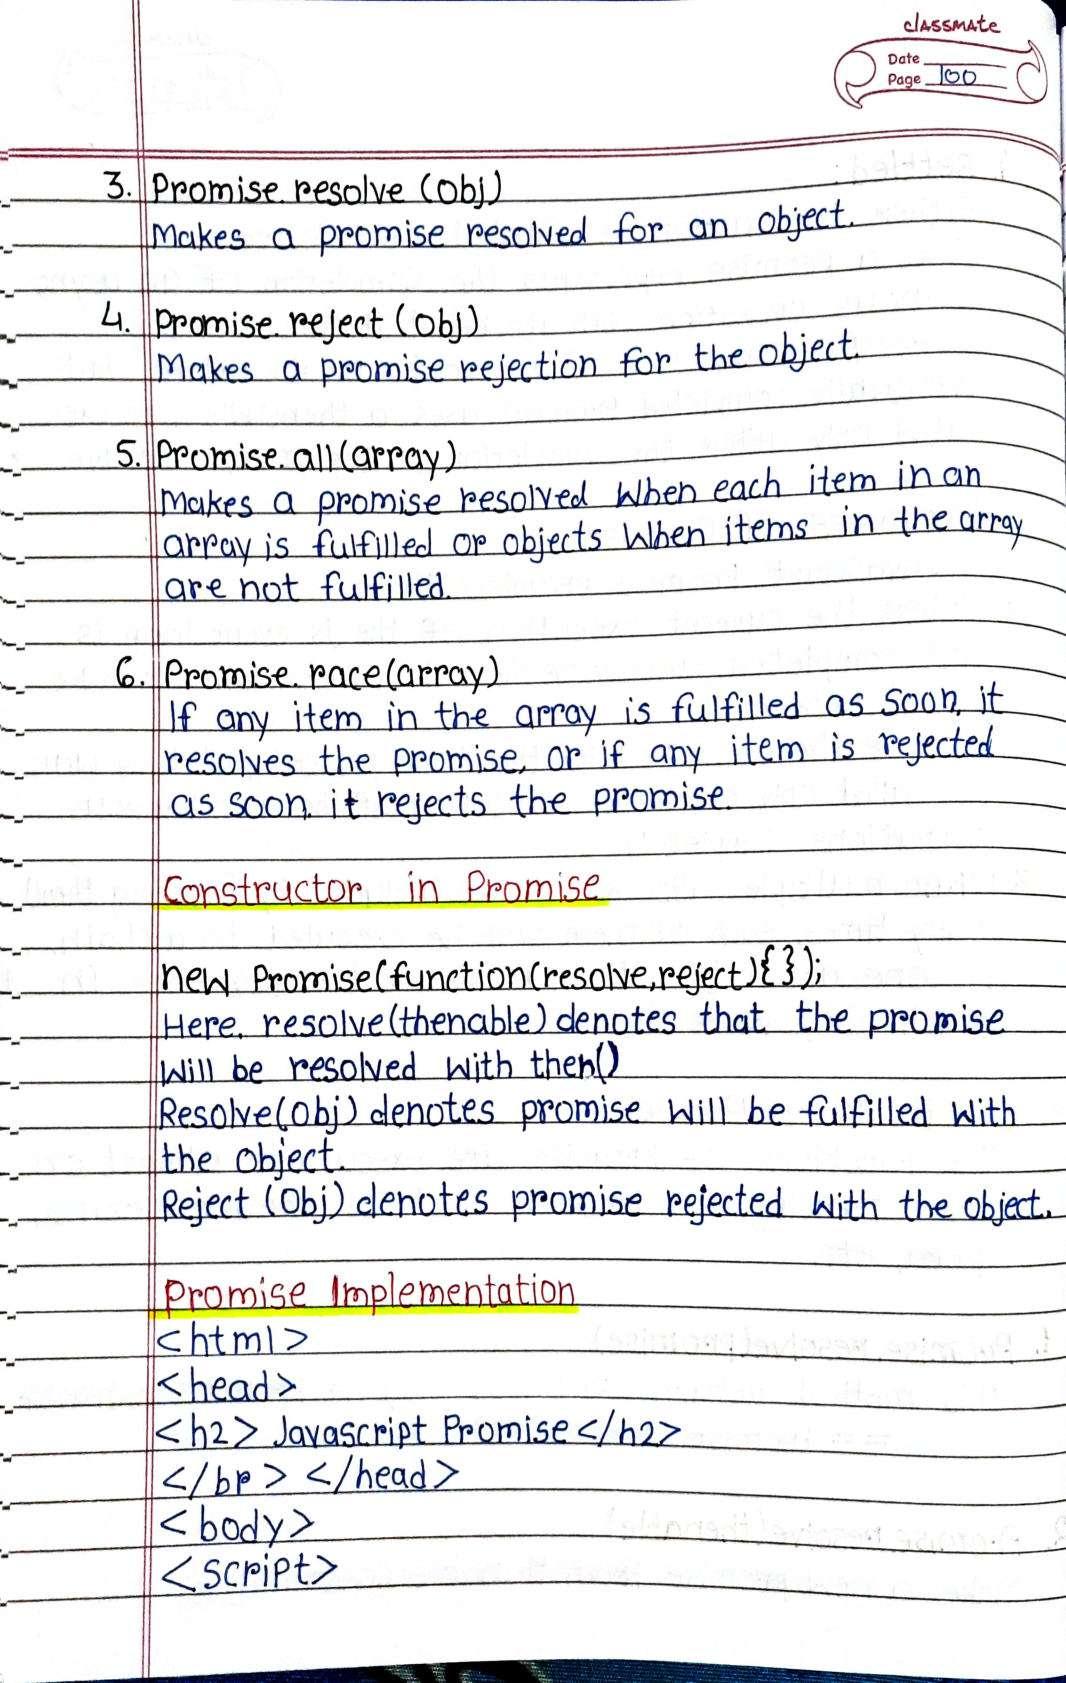 classmate
Date
Page 100
3. Promise.resolve (obj)
Makes a promise resolved for an object.
4. Promise.reject (obj)
Makes a promise rejection for the object.
5. Promise.all(array)
Makes a promise resolved When each item in an
array is fulfilled or objects When items in the array
are not fulfilled.
6. Promise.race(array)
If any item in the array is fulfilled as soon, it
resolves the promise, or if any item is rejected
as soon, it rejects the promise.
Constructor in Promise
new Promise(function(resolve,reject){});
Here, resolve(thenable) denotes that the promise
Will be resolved with then()
Resolve(obj) denotes promise Will be fulfilled With
the object.
Reject (Obj) denotes promise rejected With the object.
Promise Implementation
<html>
<head>
<h2> Javascript Promise </h2>
</br> </head>
<body>
<script>